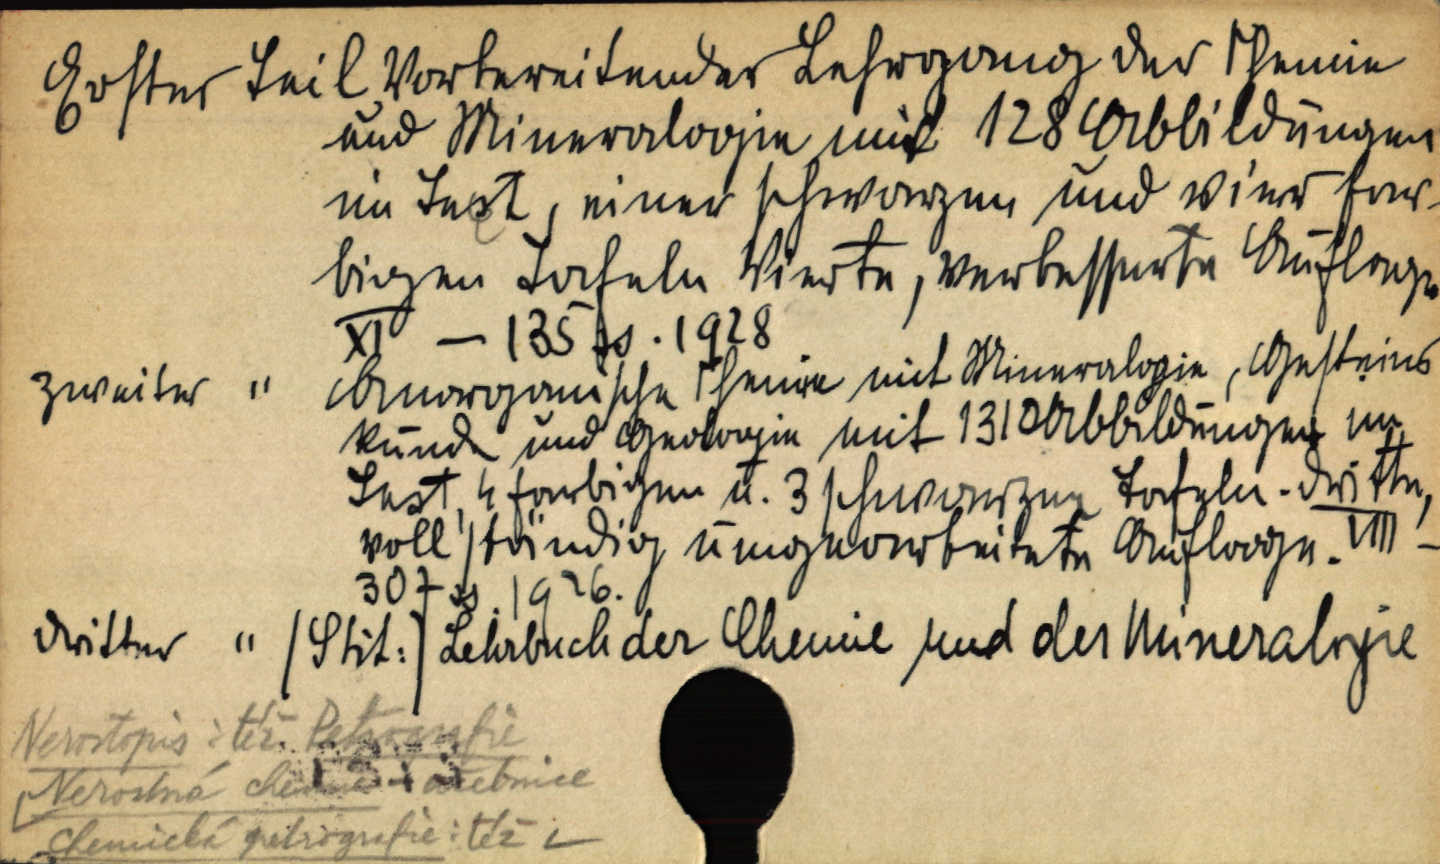 Erster Teil Vorbereitender Lehrgang der Chemie
und Mineralogie mit 128 Abbildungen
im Text, einer schwarzen und vier far-
bigen Tafeln Vierte, verbesserte Auflage
XI — 135 ss. 1928
zweiter " Anorganische Chemie mit Mineralogie, Gesteins
kunde und Geologie mit 1310 Abbildungen im
Text, 4 farbigen u. 3 schwarzen Tafeln - dritte,
vollständig umgearbeitete Auflage. VIII —
307 ss. 1926.
dritter " (Stit:) Lehrbuch der Chemie und der Mineralogie
Nerostopis: též Petrografie
Nerostná chemie - učebnice
chemická petrografie: též